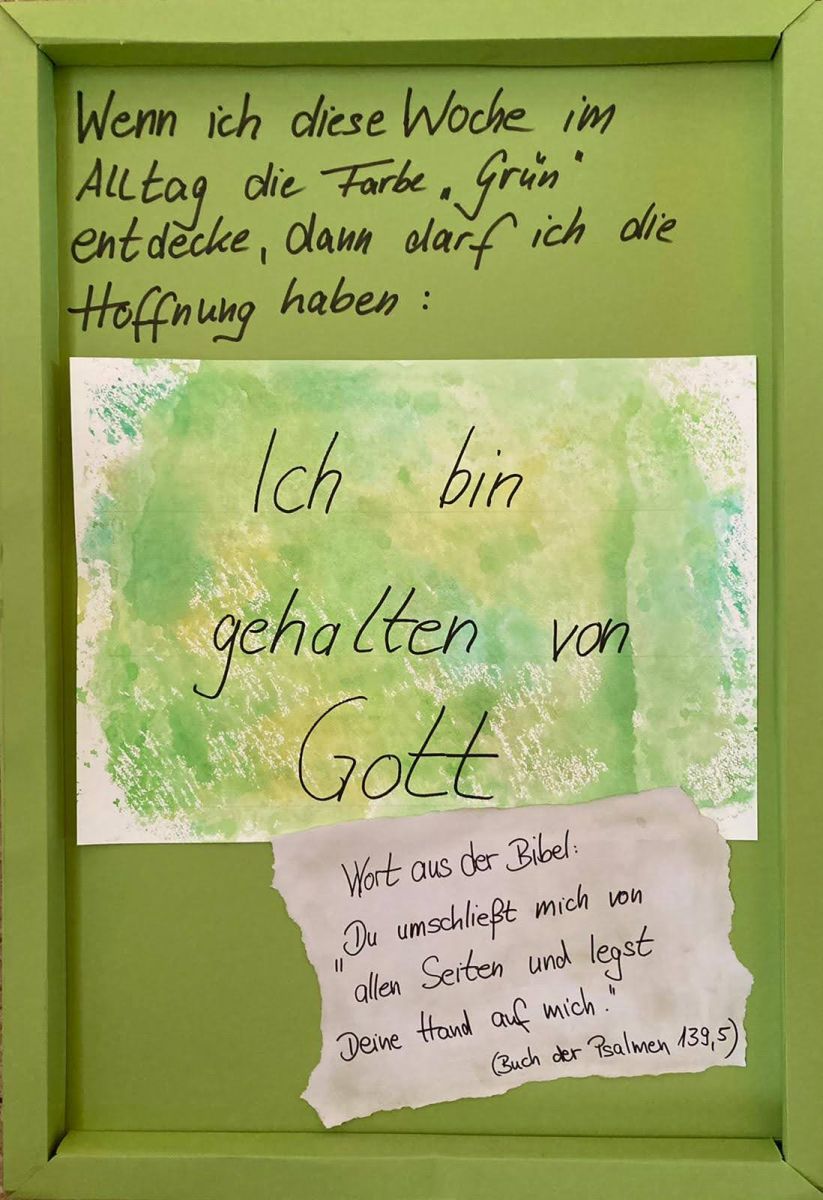 Wenn ich diese Woche im
Alltag die Farbe „Grün"
entdecke, dann darf ich die
Hoffnung haben:
Ich bin
gehalten von
Gott
Wort aus der Bibel:
"Du umschließt mich von
allen Seiten und legst
Deine Hand auf mich."
(Buch der Psalmen 139,5)